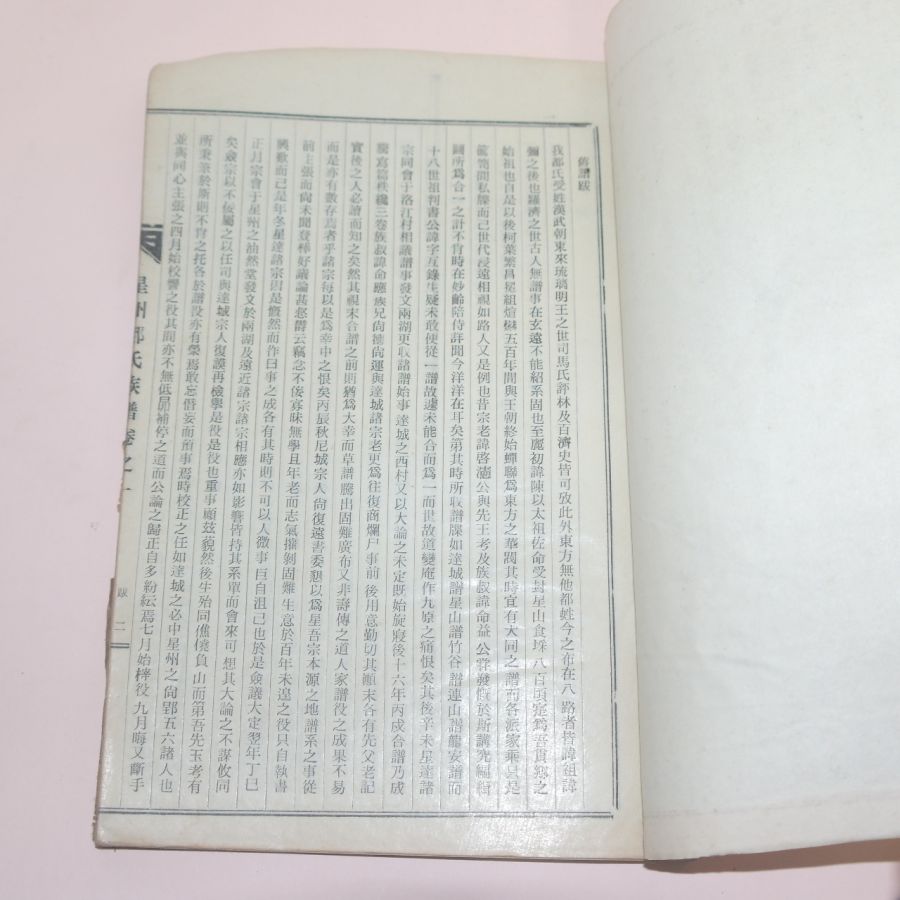 舊譜跋
我都氏受姓漢武朝東來琉璃明王之世司馬氏評林及百濟史皆可攷此外東方無他都姓今之布在八路者皆諱祖諱
彌之後也羅濟之世古人無譜事在玄遠不能紹系固也至麗初諱陳以太祖佐命受封星山食埰八百頃寔爲吾貫鄕之
始祖也自是以後柯葉繁昌圭組煊爀五百年間與王朝終始蟬聯爲東方之華閥其時宜有大同之譜而各派家乘只是
篋笥間私牒而已世代浸遠相視如路人又是例也昔宗老諱啓 公與先王考及族叔諱命益公羣發慨於斯講究編輯
圖所爲合一之計不肯時在妙齡陪侍詳聞今洋洋在耳矣第其時所収譜牒如達城譜星山譜竹谷譜連山譜龍安譜而
十八世祖判書公諱字互錄生疑未敢使從一譜故遽未能合而爲一而世故道變庵作九原之痛恨矣其後辛未星達諸
宗同會于洛江村相議譜事發文兩湖更収諸譜始事達城之西村又以大論之未定旣始旋寢後十六年丙戌合譜乃成
寫篇秩 三卷族叔諱命應族兄尙 尙運與達城諸宗老更爲往復商爛尸事前後用意勤切其顚末各有先父老記
實後之人必讀而知之矣然其視末合譜之前則猶爲大幸而草譜謄出固難廣布又非壽傳之道人家譜役之成果不易
而是亦有數存焉者乎諸宗每以是爲幸中之恨矣丙辰秋尼城宗人尙復遠書委懇以爲星吾宗本源之地譜系之事從
前主張而尙未聞登梓好議論甚愍鬱云竊念不侫寡昧無學且年老而志氣摧剝固難生意於百年未遑之役只自執書
興歎而已是年冬星達諸宗因是慨然而作曰事之成各有其時則不可以人微事巨自沮已也於是僉議大定翌年丁巳
正月宗會于星州之油然堂發文於兩湖及遠近諸宗諸宗相應亦如影響皆持其系單而會來可想其大論之不謀攸同
矣僉宗以不侫屬之以任司與達城宗人復謨再檢學是役是役也重事 玆藐然後生殆同僬僥負山而第吾先王考有
所秉筆於斯則不肖之托名於譜役亦有榮焉敢忘僭妄而預事焉時校正之任如達城之必中星州之尙郢五六諸人也
並與同心主張之四月始校讐之役其間亦不無低昻補停之道而公論之歸正自多紛紜焉七月始梓役九月晦又斷手
星州都氏族譜卷之一
跋
二